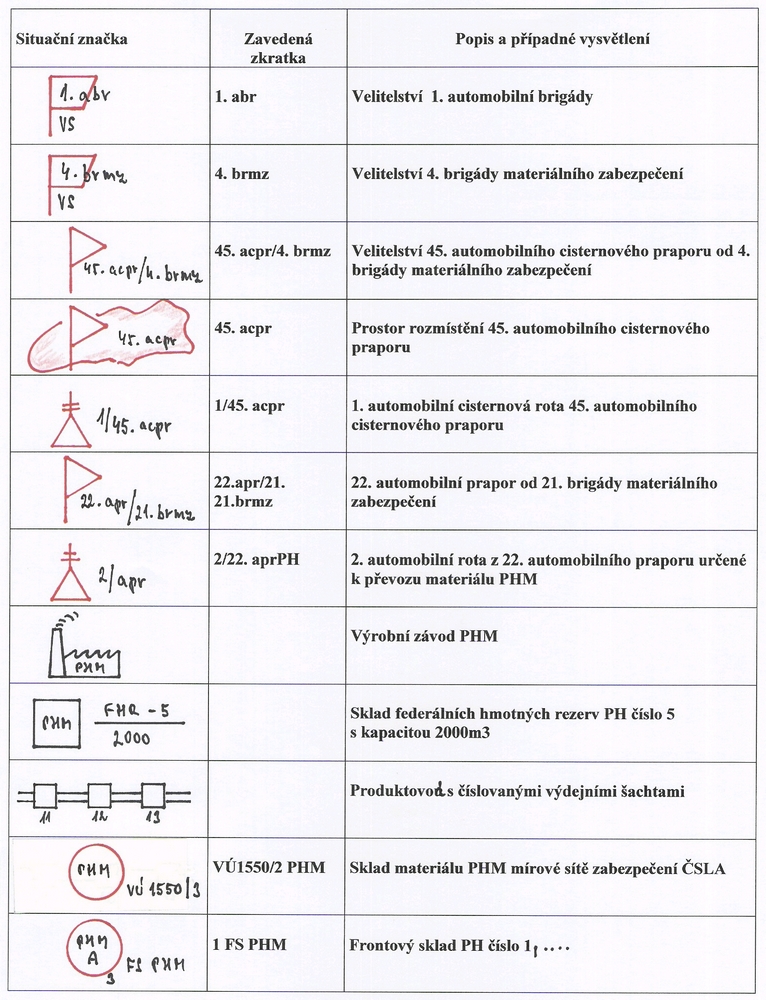 Situační značka
Zavedená
zkratka
Popis a případné vysvětlení
1. abr
VS
1. abr
Velitelství 1. automobilní brigády
4. brmz
VS
4. brmz
Velitelství 4. brigády materiálního zabezpečení
45. acpr/4. brmz
45. acpr/4. brmz
Velitelství 45. automobilního cisternového praporu od 4.
brigády materiálního zabezpečení
45. acpr
45. acpr
Prostor rozmístění 45. automobilního cisternového
praporu
1/45. acpr
1/45. acpr
1. automobilní cisternová rota 45. automobilního
cisternového praporu
22. apr/21. brmz
22.apr/21.
21.brmz
22. automobilní prapor od 21. brigády materiálního
zabezpečení
2/apr
2/22. aprPH
2. automobilní rota z 22. automobilního praporu určené
k převozu materiálu PHM
PHM
Výrobní závod PHM
PHM
FHR - 5
2000
Sklad federálních hmotných rezerv PH číslo 5
s kapacitou 2000m3
11 12 13
Produktovod s číslovanými výdejními šachtami
PHM
VÚ 1550/3
VÚ1550/2 PHM
Sklad materiálu PHM mírové sítě zabezpečení ČSLA
PHM
A
3 FS PHM
1 FS PHM
Frontový sklad PH číslo 1, ....